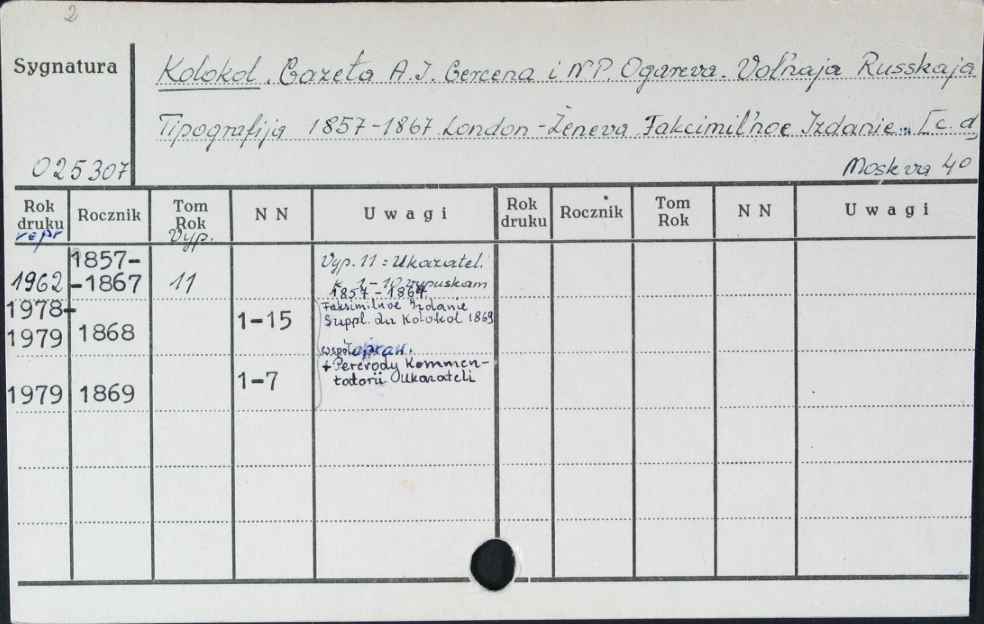 2
Sygnatura
Kolokol. Gazeta A.I. Gercena i N.P. Ogareva. Vol'naja Russkaja
Tipografija 1857-1867 London-Ženeva Fakcimil'noe Izdanie... [c. d,
025307
Moskva 4°
Rok druku Rocznik Tom Rok NN Uwagi Rok druku Rocznik Tom Rok NN Uwagi
repr Vyp.
1962 1857-1867 11 Vyp. 11: Ukazatel.
k 1-10 vypuskam
1857-1867
1978-1979 1868 1-15 Faksimilnoe Izdanie
Suppl. du Kolokol 1869
współopraw.
1979 1869 1-7 + Perevody Kommen-
tadorii Ukazateli